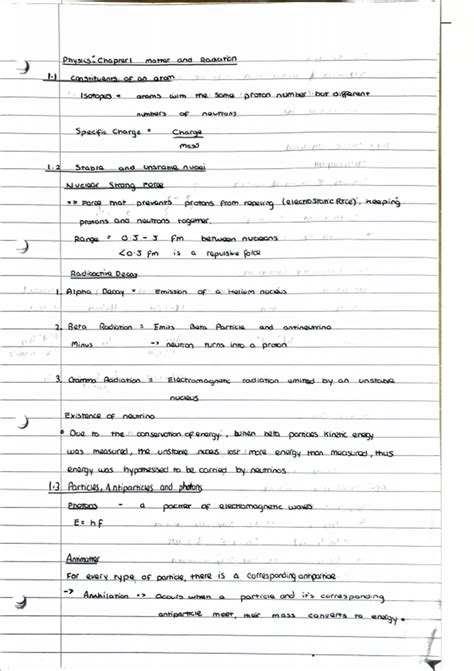 Physics - Chapter 1 matter and Radiation
1.1 constituents of an atom
Isotopes = atoms with the same proton number but different
numbers of neutrons
Specific Charge = Charge
mass
1.2 Stable and unstable nuclei
Nuclear Strong Force
=> Force that prevents protons from repelling (electrostatic force), keeping
protons and neutrons together.
Range = 0.5 - 3 fm between nucleons
<0.5 fm is a repulsive force
Radioactive Decay
1. Alpha Decay = Emission of a Helium nucleus
2. Beta Radiation = Emits Beta Particle and antineutrino
Minus -> neutron turns into a proton
3. Gamma Radiation = Electromagnetic radiation emitted by an unstable
nucleus
Existence of neutrino
• Due to the conservation of energy, when beta particles kinetic energy
was measured, the unstable nuclei lost more energy than measured, thus
energy was hypothesised to be carried by neutrinos.
1.3 Particles, Antiparticles and photons
Photons - a packet of electromagnetic waves
E = hf
Antimatter
For every type of particle, there is a corresponding antiparticle
-> Annihilation => Occurs when a particle and it's corresponding
antiparticle meet, their mass converts to energy.